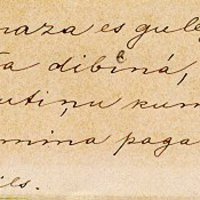 maza es gule
ta dibiná,
utiņu kum
mina paga
ils.